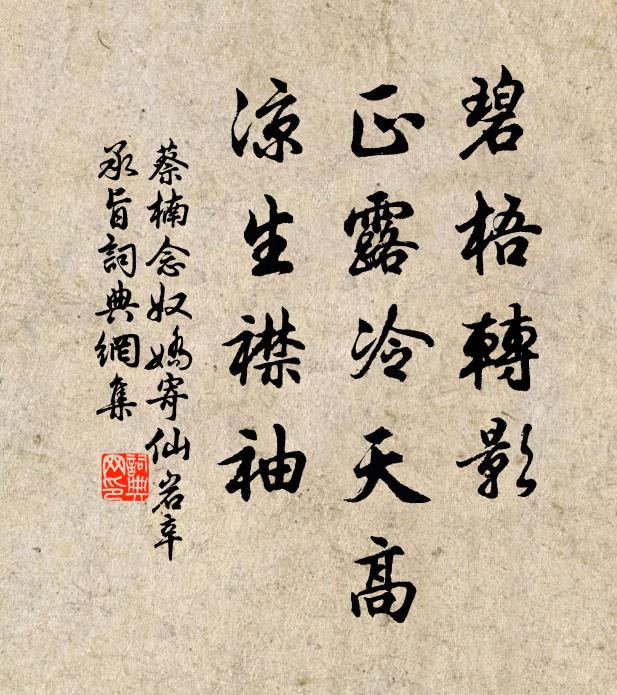 碧梧轉影
正露冷天高
凉生襟袖
蔡楠念奴嬌寄仙岩辛
承旨詞典網集
詞典
网印